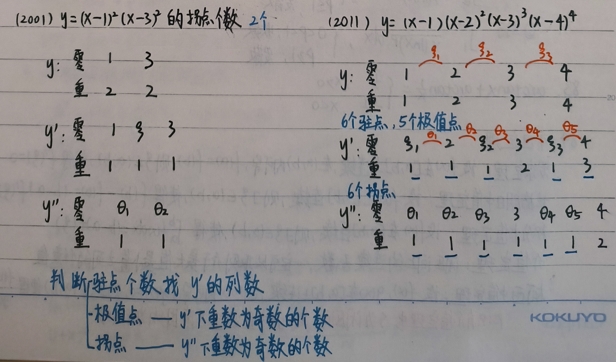 (2001) y=(x-1)²(x-3)² 的拐点个数 2个.
y: 零 1 3
重 2 2
y': 零 1 ξ 3
重 1 1 1
y'': 零 θ₁ θ₂
重 1 1
(2011) y=(x-1)(x-2)²(x-3)³(x-4)⁴
ξ₁ ξ₂ ξ₃
y: 零 1 2 3 4
重 1 2 3 4
6个驻点,5个极值点
θ₁ θ₂ θ₃ θ₄ θ₅
y': 零 ξ₁ 2 ξ₂ 3 ξ₃ 4
重 1 1 1 2 1 3
6个拐点
y'': 零 θ₁ θ₂ θ₃ 3 θ₄ θ₅ 4
重 1 1 1 1 1 1 2
判断驻点个数找 y'的列数
极值点 — y'下重数为奇数的个数
拐点 — y''下重数为奇数的个数
KOKUYO